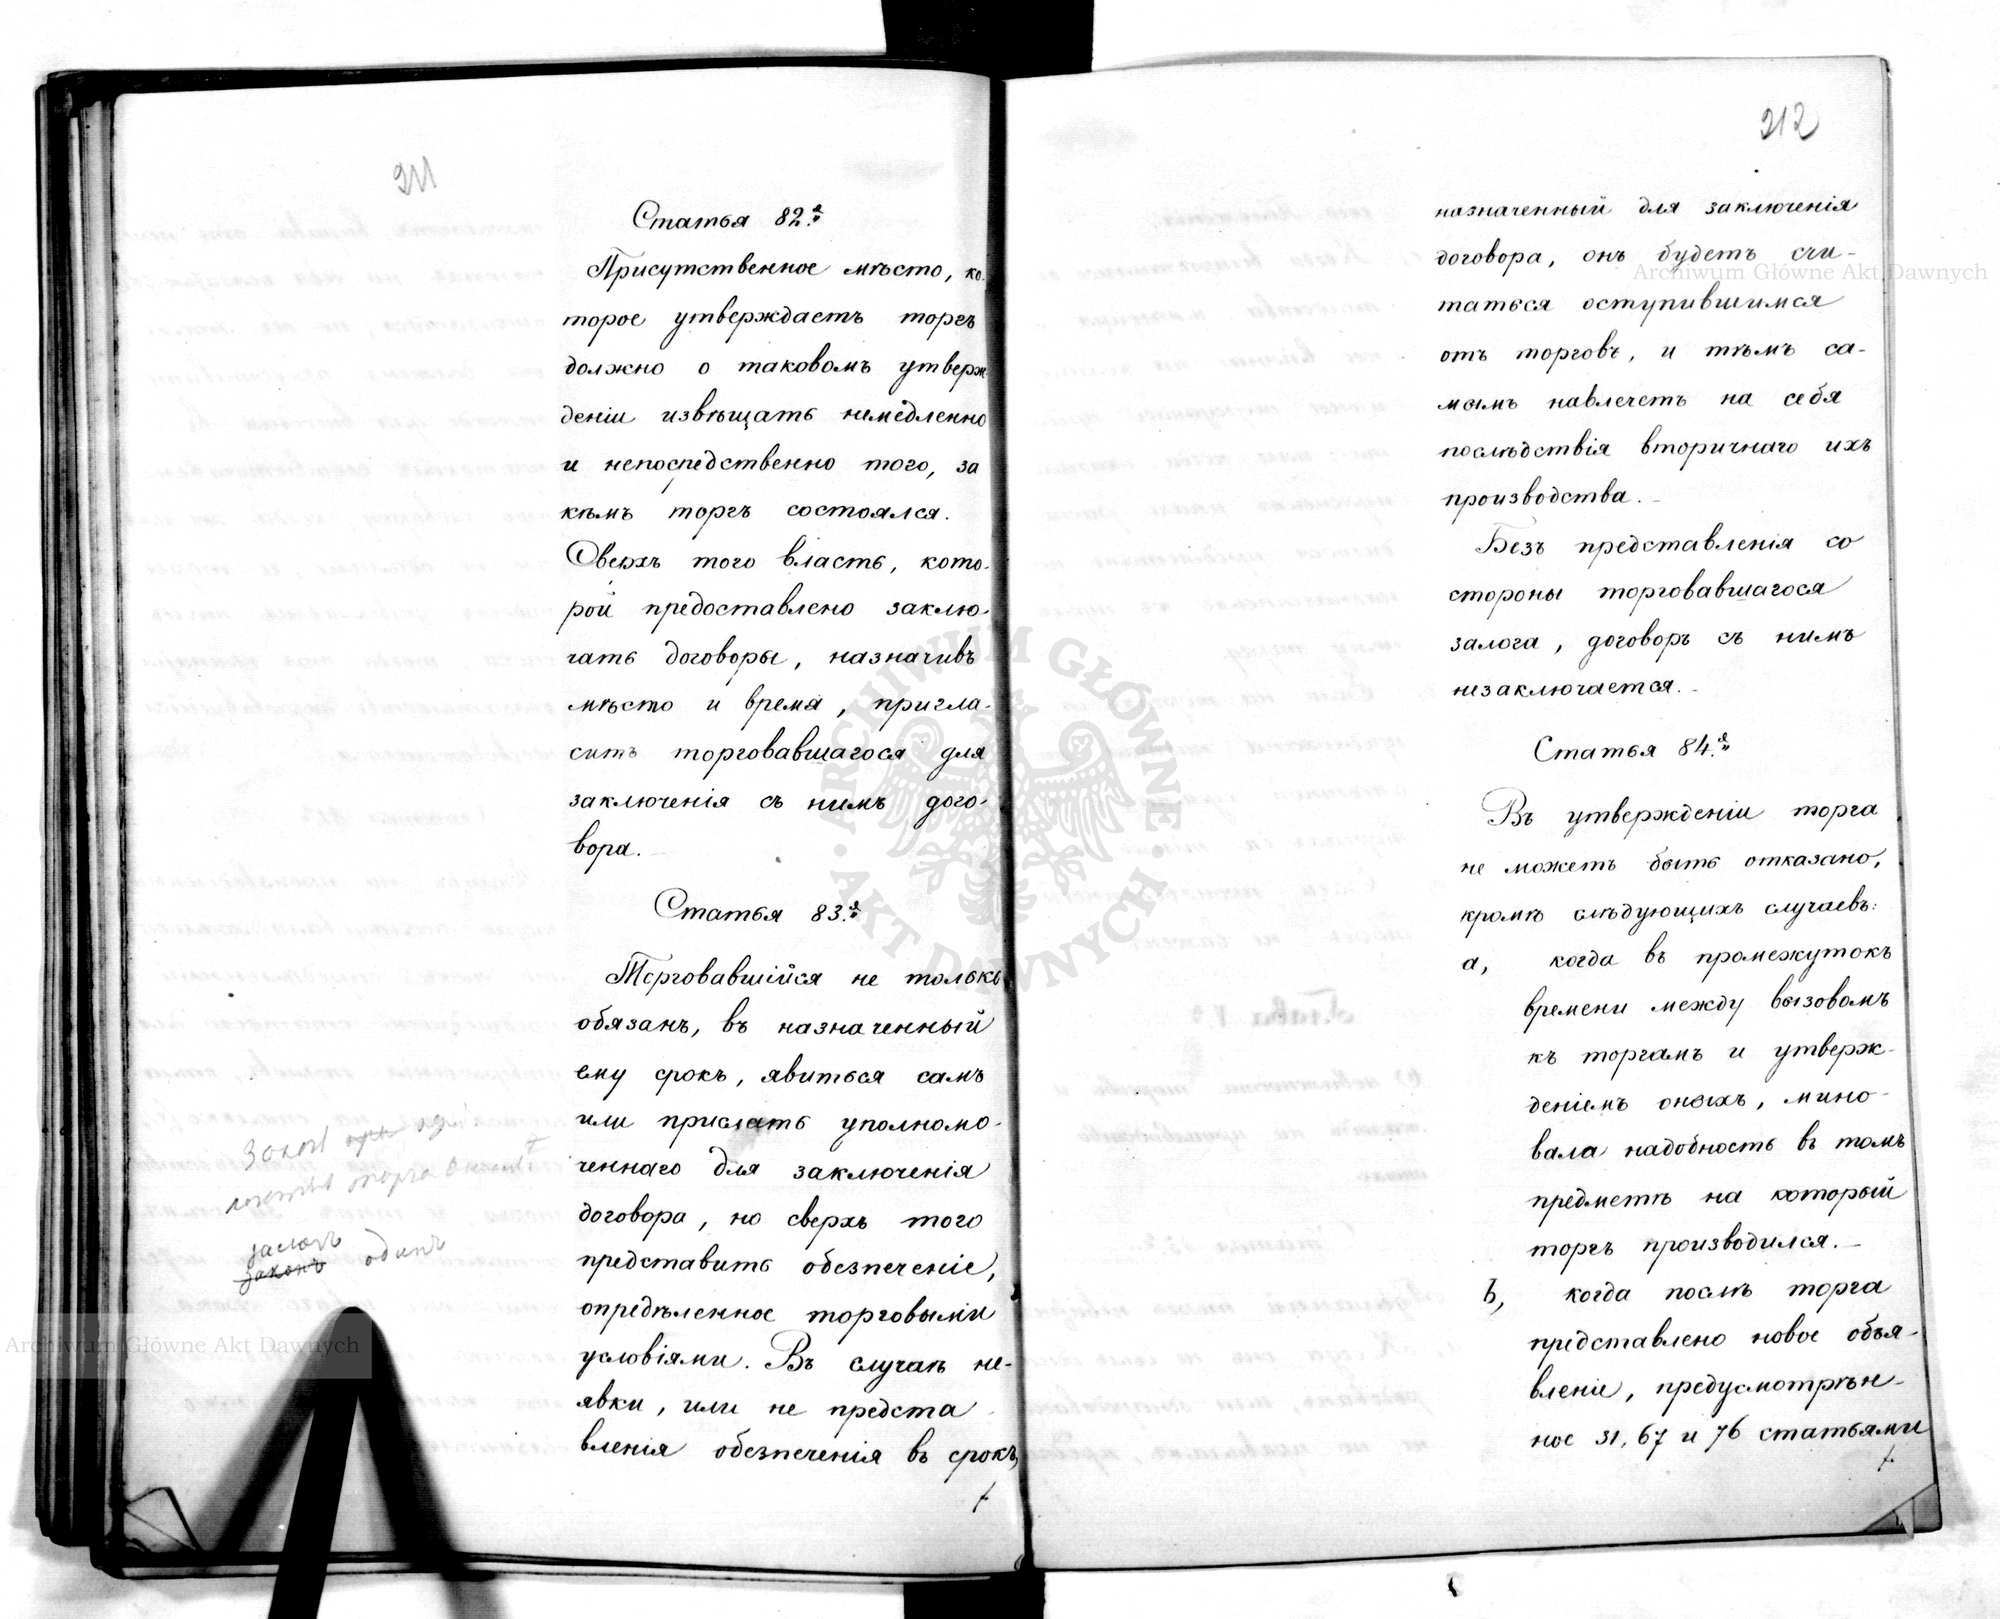 211
Статья 82.я
Присутственное мѣсто, ко-
торое утверждаетъ торгъ
должно о таковомъ утверж-
деніи извѣщать немедленно
и непосредственно того, за
кѣмъ торгъ состоялся.
Сверхъ того власть, кото-
рой предоставлено заклю-
чать договоры, назначивъ
мѣсто и время, пригла-
ситъ торговавшагося для
заключенія съ нимъ дого-
вора.
Статья 83.я
Торговавшійся не только
обязанъ, въ назначенный
ему срокъ, явиться самъ
или прислать уполномо-
ченнаго для заключенія
договора, но сверхъ того
представить обезпеченіе,
опредѣленное торговыми
условіями. Въ случаѣ не-
явки, или не предста-
вленія обезпеченія въ срокъ,
торга
залогъ
законъ одинъ
212
назначенный для заключенія
договора, онъ будетъ счи-
таться оступившимся
отъ торговъ, и тѣмъ са-
мымъ навлечетъ на себя
послѣдствія вторичнаго ихъ
производства.
Безъ представленія со
стороны торговавшагося
залога, договоръ съ нимъ
незаключается.
Статья 84.я
Въ утвержденіи торга
не можетъ быть отказано,
кромѣ слѣдующихъ случаевъ:
а, когда въ промежутокъ
времени между вызовомъ
къ торгамъ и утверж-
деніемъ оныхъ, мино-
вала надобность въ томъ
предметѣ на который
торгъ производился.
b, когда послѣ торга
представлено новое объя-
вленіе, предусмотрѣн-
ное 31, 67 и 76 статьями
Archiwum Główne Akt Dawnych
Archiwum Główne Akt Dawnych
ARCHIWUM GŁÓWNE
AKT DAWNYCH